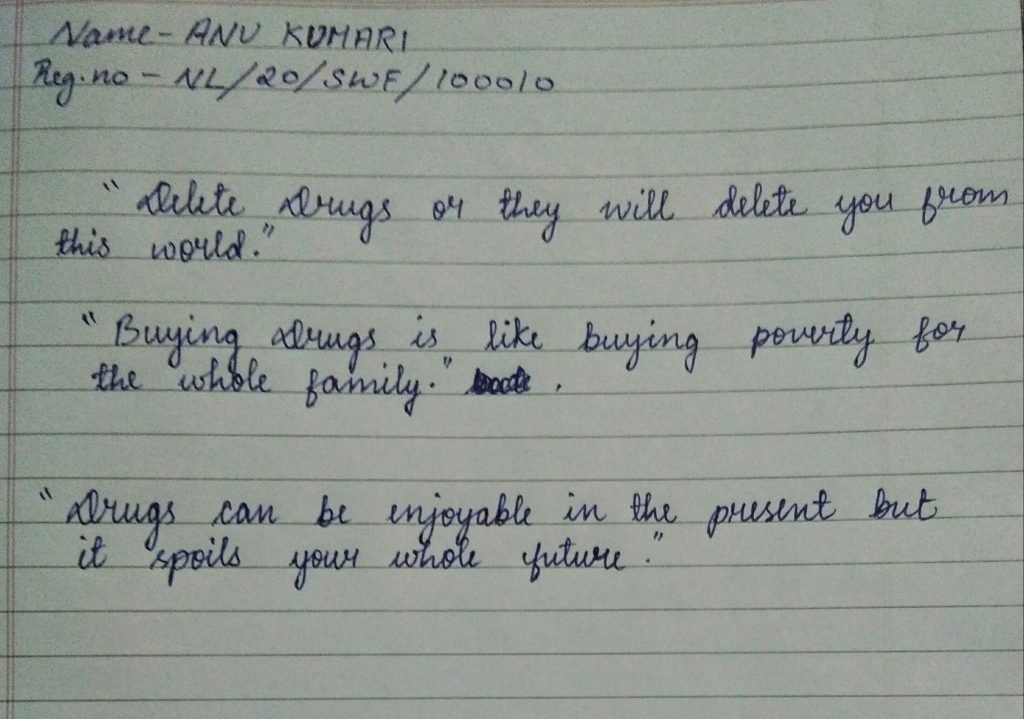 Name - ANU KUMARI
Reg. no - NL/20/SWF/100010
"Delete Drugs or they will delete you from
this world."
"Buying drugs is like buying poverty for
the whole family." .
"Drugs can be enjoyable in the present but
it spoils your whole future."